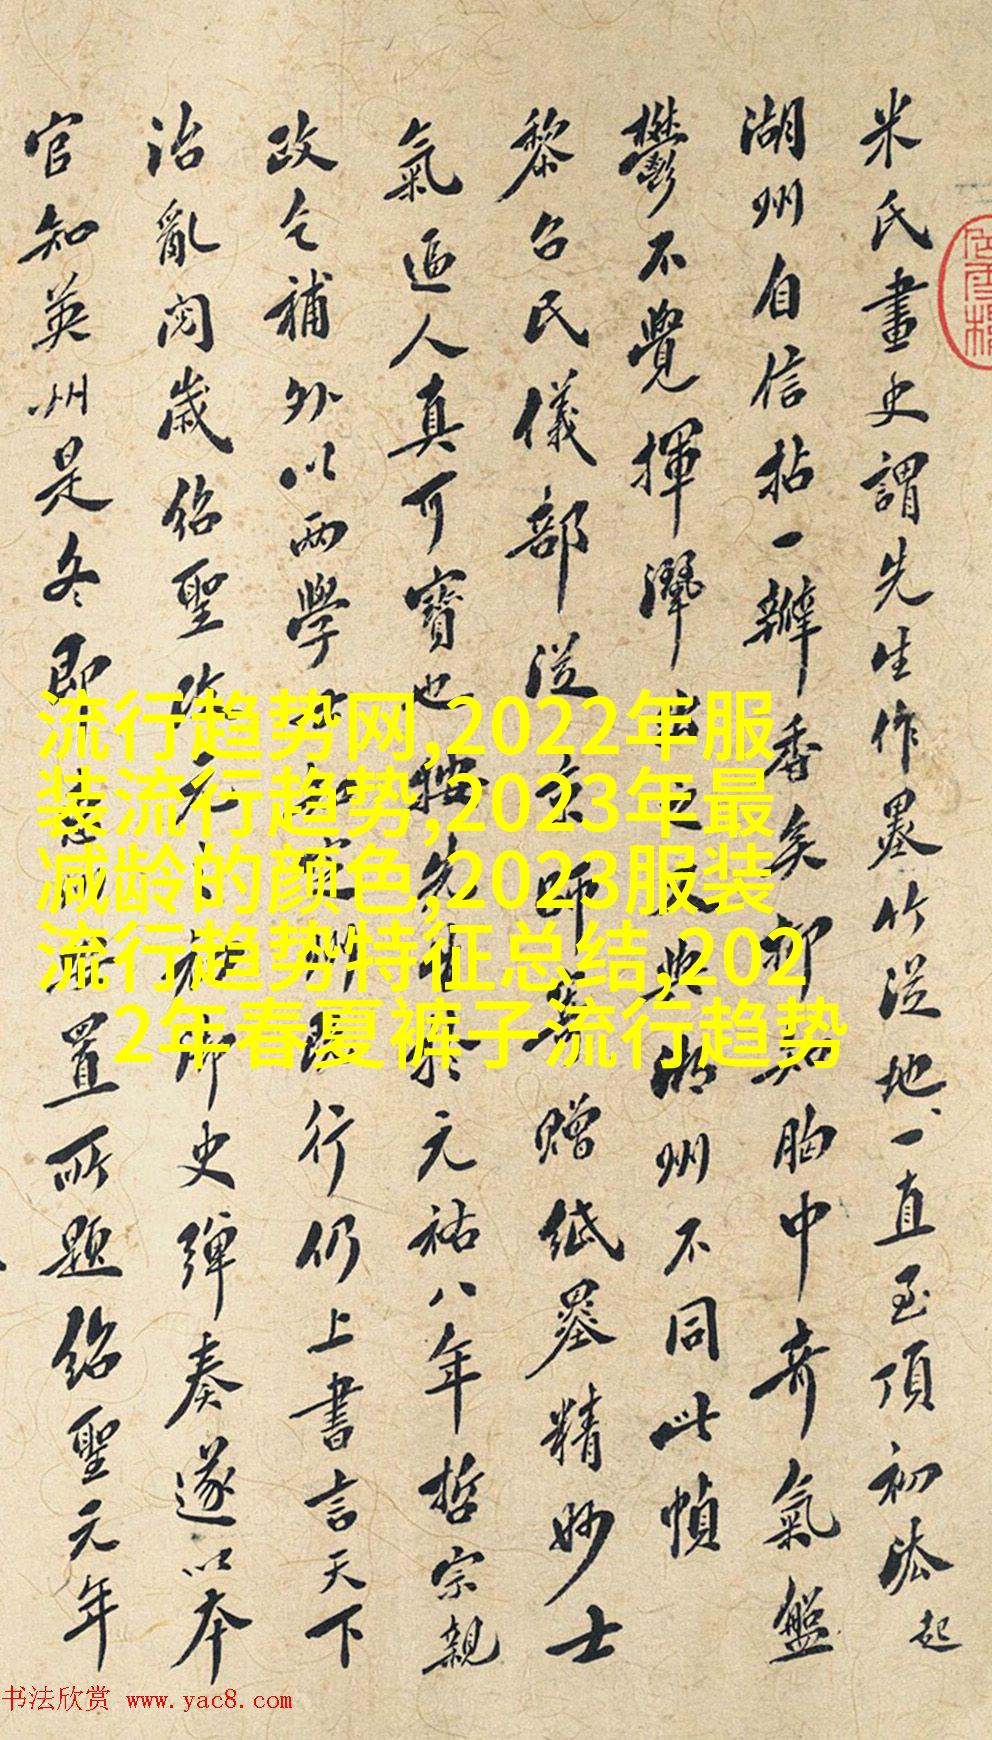 米氏畫史謂先生作墨竹從地一直至頂初法起
湖州自信拈一瓣香矣知胸中奇氣盤
鬱不覺揮灑之與湖州不同此幀
黎召民儀部從京師寄贈紙墨精妙士
氣逼人真可寶也按先生於元祐八年哲宗親
政乞補外以兩學士知定州既行仍上書言天下
治亂閱歲紹聖改元御史彈奏遂以本
官知英州是冬即惠州置所題紹聖元年
流行趋势网,2022年服
装流行趋势,2023年最
减龄的颜色,2023服装
流行趋势特征总结,202
2年春夏裤子流行趋势
书法欣赏 www.yac8.com